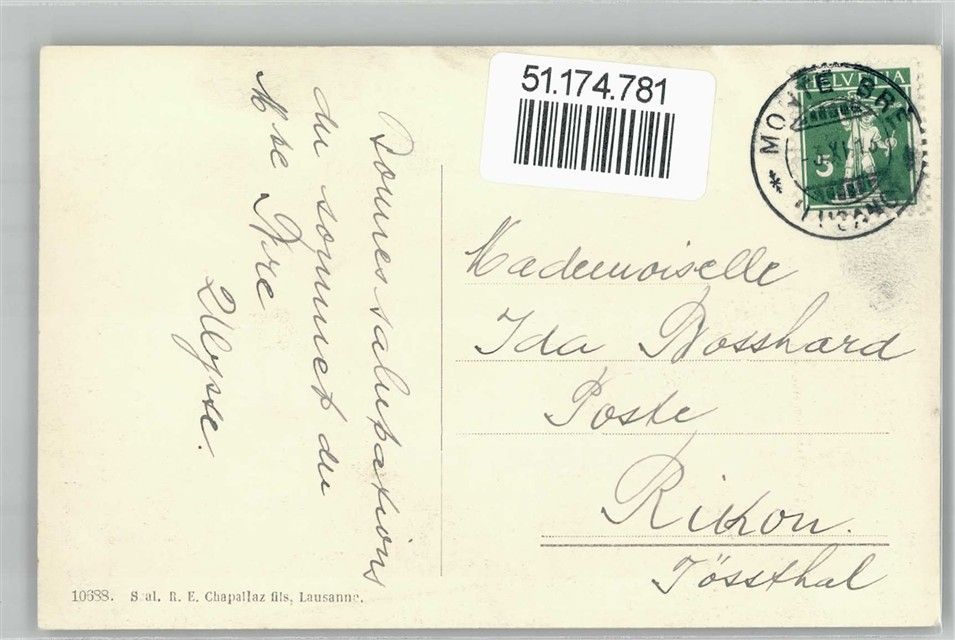 51.174.781
HELVETIA
5
MONTE BRE
LUGANO
Bonnes salutations
du sommet du
Mte Bre
Ulysse.
Mademoiselle
Ida Bosshard
Poste
Rikon.
Tössthal
10688. S al. R. E. Chapallaz fils, Lausanne.